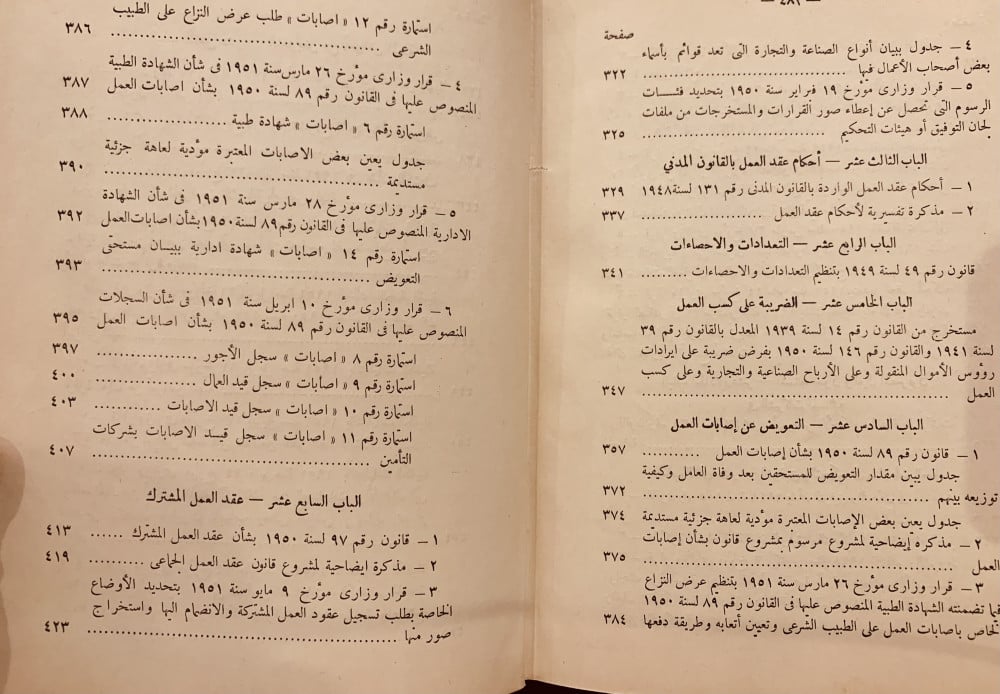 — ٤٨١ —
صفحة
٤ — جدول ببيان أنواع الصناعة والتجارة التى تعد قوائم بأسماء
بعض أصحاب الأعمال فيها .............................. ٣٢٢
٥ — قرار وزارى مؤرخ ١٩ فبراير سنة ١٩٥٠ بتحديد فئــــات
الرسوم التى تحصل عن إعطاء صور القرارات والمستخرجات من ملفات
لجان التوفيق أو هيئات التحكيم .............................. ٣٢٥
الباب الثالث عشر — أحكام عقد العمل بالقانون المدني
١ — أحكام عقد العمل الواردة بالقانون المدنى رقم ١٣١ لسنة ١٩٤٨ ٣٢٩
٢ — مذكرة تفسيرية لأحكام عقد العمل .................... ٣٣٧
الباب الرابع عشر — التعدادات والاحصاءات
قانون رقم ٤٩ لسنة ١٩٤٩ بتنظيم التعدادات والاحصاءات ......... ٣٤١
الباب الخامس عشر — الضريبة على كسب العمل
مستخرج من القانون رقم ١٤ لسنة ١٩٣٩ المعدل بالقانون رقم ٣٩
لسنة ١٩٤١ والقانون رقم ١٤٦ لسنة ١٩٥٠ بفرض ضريبة على ايرادات
رؤوس الأموال المنقولة وعلى الأرباح الصناعية والتجارية وعلى كسب
العمل .................................................. ٣٤٧
الباب السادس عشر — التعويض عن إصابات العمل
١ — قانون رقم ٨٩ لسنة ١٩٥٠ بشأن إصابات العمل ............ ٣٥٧
جدول يبين مقدار التعويض للمستحقين بعد وفاة العامل وكيفية
توزيعه بينهم ........................................ ٣٧٢
جدول يعين بعض الإصابات المعتبرة مؤدية لعاهة جزئية مستديمة ٣٧٤
٢ — مذكرة إيضاحية لمشروع مرسوم بمشروع قانون بشأن إصابات
العمل .................................................. ٣٧٥
٣ — قرار وزارى مؤرخ ٢٦ مارس سنة ١٩٥١ بتنظيم عرض النزاع
فيما تضمنته الشهادة الطبية المنصوص عليها فى القانون رقم ٨٩ لسنة ١٩٥٠
الخاص باصابات العمل على الطبيب الشرعى وتعيين أتعابه وطريقة دفعها ٣٨٤
استمارة رقم ١٢ « اصابات » طلب عرض النزاع على الطبيب
الشرعى .................................................. ٣٨٦
٤ — قرار وزارى مؤرخ ٢٦ مارس سنة ١٩٥١ فى شأن الشهادة الطبية
المنصوص عليها فى القانون رقم ٨٩ لسنة ١٩٥٠ بشأن اصابات العمل ٣٨٧
استمارة رقم ٦ « اصابات » شهادة طبية .................... ٣٨٨
جدول يعين بعض الاصابات المعتبرة مؤدية لعاهة جزئية
مستديمة .................................................. ٣٩٠
٥ — قرار وزارى مؤرخ ٢٨ مارس سنة ١٩٥١ فى شأن الشهادة
الادارية المنصوص عليها فى القانون رقم ٨٩ لسنة ١٩٥٠ بشأن اصابات العمل ٣٩٢
استمارة رقم ١٤ « اصابات » شهادة ادارية ببيــان مستحقى
التعويض .................................................. ٣٩٣
٦ — قرار وزارى مؤرخ ١٠ ابريل سنة ١٩٥١ فى شأن السجلات
المنصوص عليها فى القانون رقم ٨٩ لسنة ١٩٥٠ بشأن اصابات العمل ٣٩٥
استمارة رقم ٨ « اصابات » سجل الأجور .................... ٣٩٧
استمارة رقم ٩ « اصابات » سجل قيد العمال .................... ٤٠٠
استمارة رقم ١٠ « اصابات » سجل قيد الاصابات ............ ٤٠٣
استمارة رقم ١١ « اصابات » سجل قيــد الاصابات بشركات
التأمين .................................................. ٤٠٧
الباب السابع عشر — عقد العمل المشترك
١ — قانون رقم ٩٧ لسنة ١٩٥٠ بشأن عقد العمل المشترك ...... ٤١٣
٢ — مذكرة ايضاحية لمشروع قانون عقد العمل الجماعى .......... ٤١٩
٣ — قرار وزارى مؤرخ ٩ مايو سنة ١٩٥١ بتحديد الأوضاع
الخاصة بطلب تسجيل عقود العمل المشتركة والانضمام اليها واستخراج
صور منها .................................................. ٤٢٣